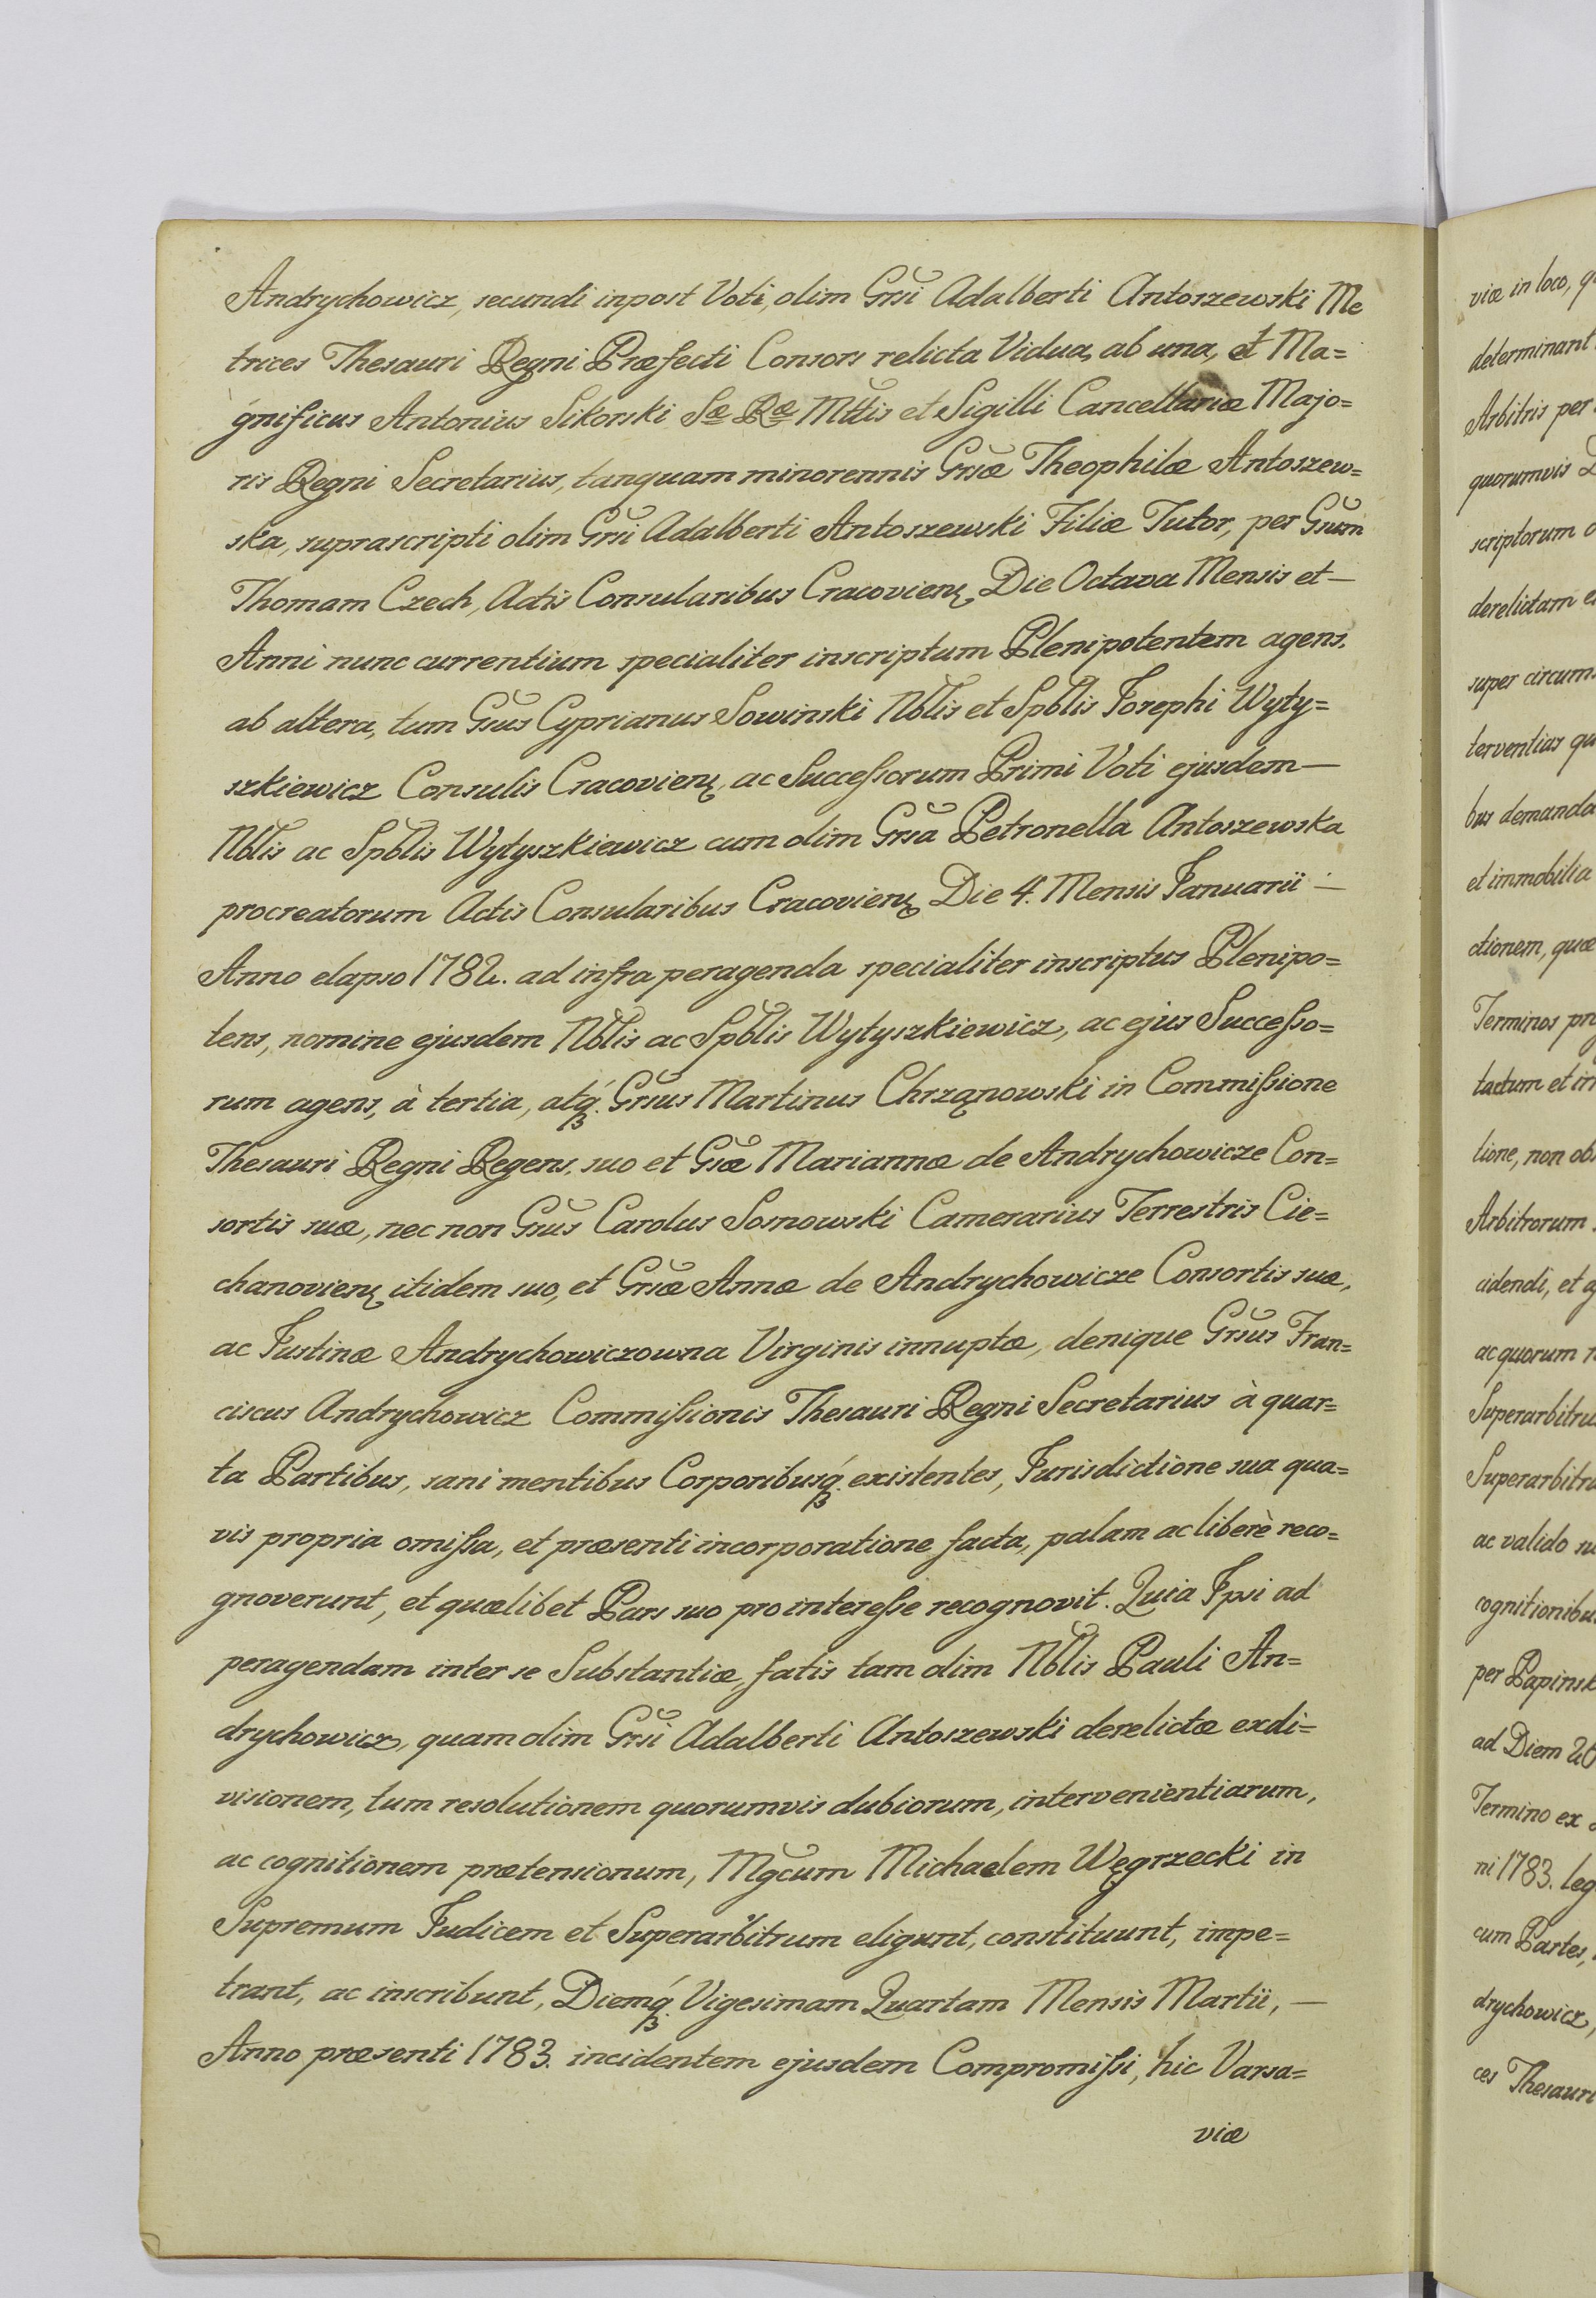 Andrychowicz, secundi inpost Voti, olim Grsi Adalberti Antoszewski Me
trices Thesauri Regni Præfecti Consors relicta Vidua, ab una, et Ma=
gnificus Antonius Sikorski Sæ Ræ Mttis et Sigilli Cancellariæ Majo=
ris Regni Secretarius, tanquam minorennis Grsæ Theophilæ Antoszew=
ska, suprascripti olim Grsi Adalberti Antoszewski Filiæ Tutor, per Gsum
Thomam Czech, Actis Consularibus Cracovienȩ Die Octava Mensis et —
Anni nunc currentium specialiter inscriptum Plenipotentem agens.
ab altera, tum Gsus Cyprianus Sowinski Nblis et Spblis Josephi Wyty=
szkiewicz Consulis Cracovienȩ, ac Successorum Primi Voti ejusdem —
Nblis ac Spblis Wytyszkiewicz cum olim Grsa Petronella Antoszewska
procreatorum Actis Consularibus Cracovienȩ Die 4. Mensis Januarii —
Anno elapso 1782. ad infra peragenda specialiter inscriptus Plenipo=
tens, nomine ejusdem Nblis ac Spblis Wytyszkiewicz, ac ejus Successo=
rum agens, à tertia, atq́. Grsus Martinus Chrząnowski in Commissione
Thesauri Regni Regens, suo et Gsæ Mariannæ de Andrychowicze Con=
sortis suæ, nec non Gsus Carolus Sosnowski Camerarius Terrestris Cie=
chanovienȩ itidem suo, et Grsæ Annæ de Andrychowicze Consortis suæ,
ac Justinæ Andrychowiczowna Virginis innuptæ, denique Grsus Fran=
ciscus Andrychowicz Commissionis Thesauri Regni Secretarius à quar=
ta Partibus, sani mentibus Corporibusq́. existentes, Jurisdictione sua qua=
vis propria omissa, et præsenti incorporatione facta, palam ac liberè reco=
gnoverunt, et quælibet Pars suo pro interesse recognovit. Quia Ipsi ad
peragendam inter se Substantiæ, fatis tam olim Nblis Pauli An=
drychowicz, quam olim Grsi Adalberti Antoszewski derelictæ exdi=
visionem, tum resolutionem quorumvis dubiorum, intervenientiarum,
ac cognitionem prætensionum, Mgcum Michaelem Węgrzecki in
Supremum Judicem et Superarbitrum eligunt, constituunt, impe=
trant, ac inscribunt, Diemq́. Vigesimam Quartam Mensis Martii, —
Anno præsenti 1783. incidentem ejusdem Compromissi, hic Varsa=
viæ
viæ in loco,
determinant
Arbitris per
quorumvis
scriptorum
derelictam
super circum
terventias
bus demanda
et immobilia
ctionem, quæ
Terminos
tactum et
tione, non
Arbitrorum
cidendi, et
ac quorum
Superarbitru
Superarbitr
ac valido
cognitionibu
per Papinsk
ad Diem
Termino ex
ni 1783. leg
cum Partes,
drychowicz,
ces Thesauri